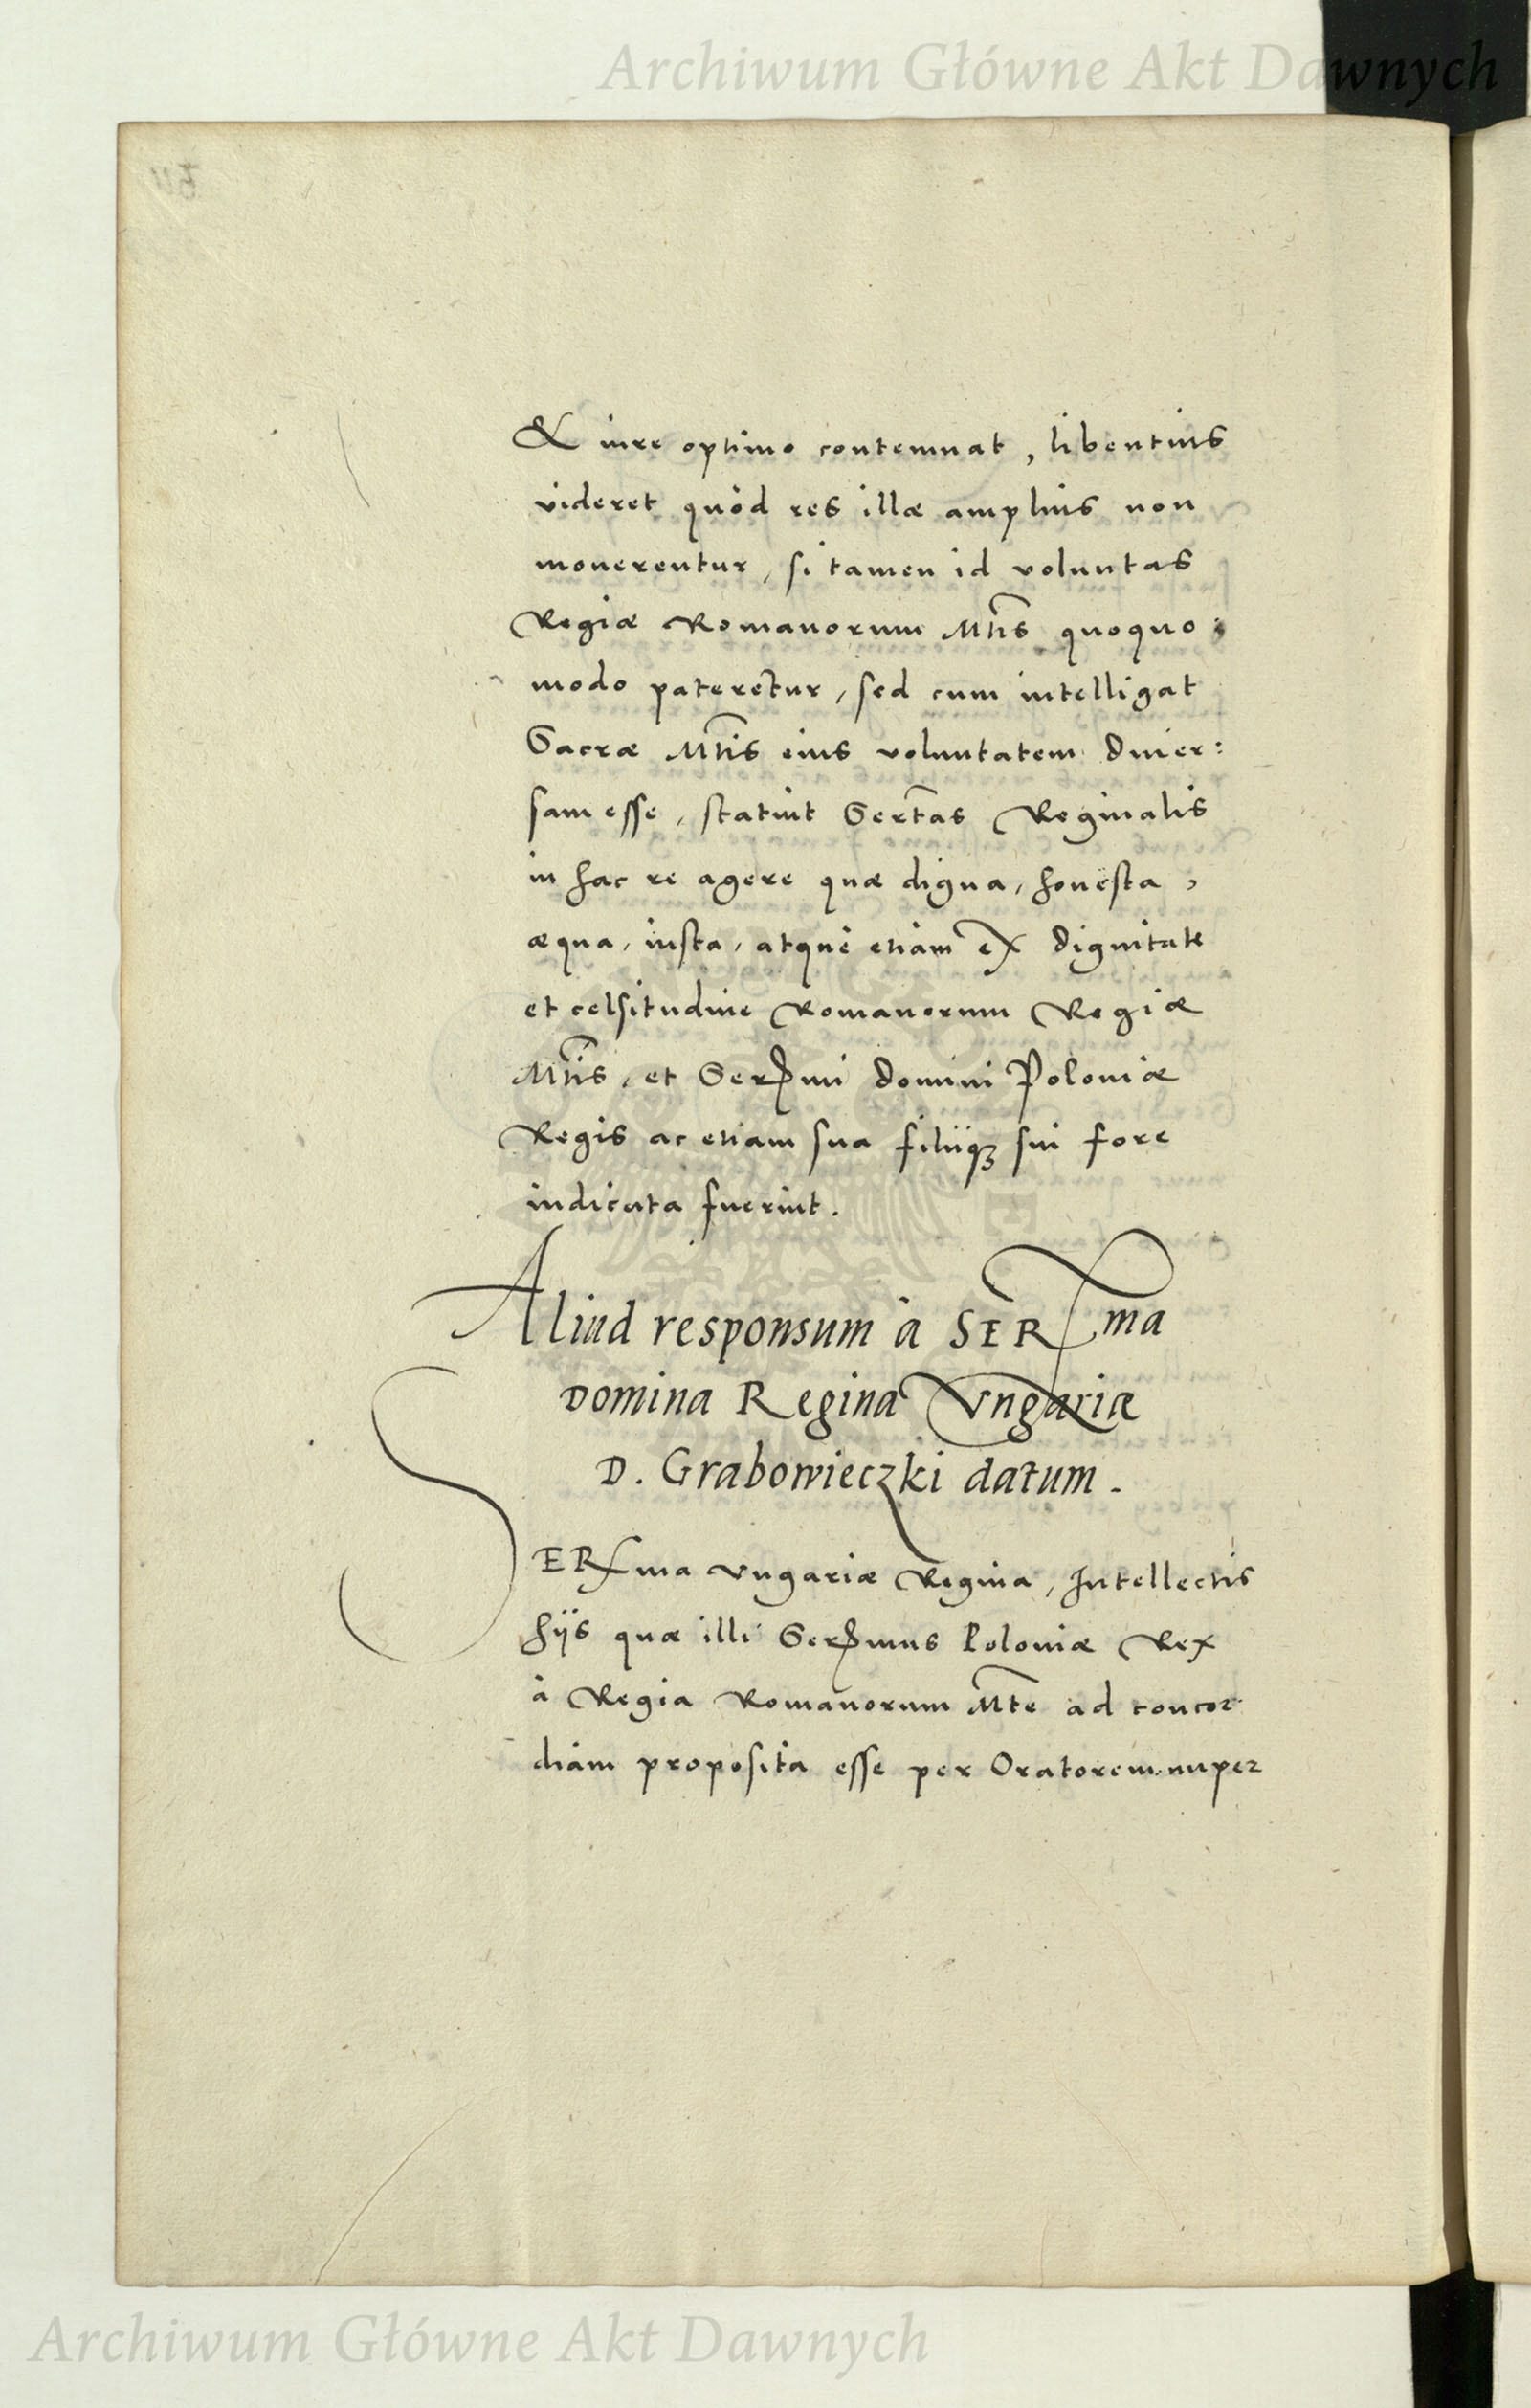 Archiwum Główne Akt Dawnych
& iure optimo contemnat, libentius
videret quòd res illæ amplius non
mouerentur, si tamen id voluntas
Regiæ Romanorum Mtis quoquo:
modo pateretur, sed cum intelligat
Sacræ Mtis eius voluntatem diuer:
sam esse, statuit Sertas Reginalis
in hac re agere quæ digna, honesta,
æqua, iusta, atque etiam ex dignitate
et celsitudine Romanorum Regiæ
Mtis, et Sermi domini Poloniæ
Regis ac etiam sua filijq3 sui fore
indicata fuerint.
Aliud responsum à SERma
Domina Regina Vngariæ
D. Grabowieczki datum.
SERma Vngariæ Regina, Intellectis
hijs quæ illi Sermus Poloniæ Rex
à Regia Romanorum Mte ad concor
diam proposita esse per Oratorem nuper
Archiwum Główne Akt Dawnych